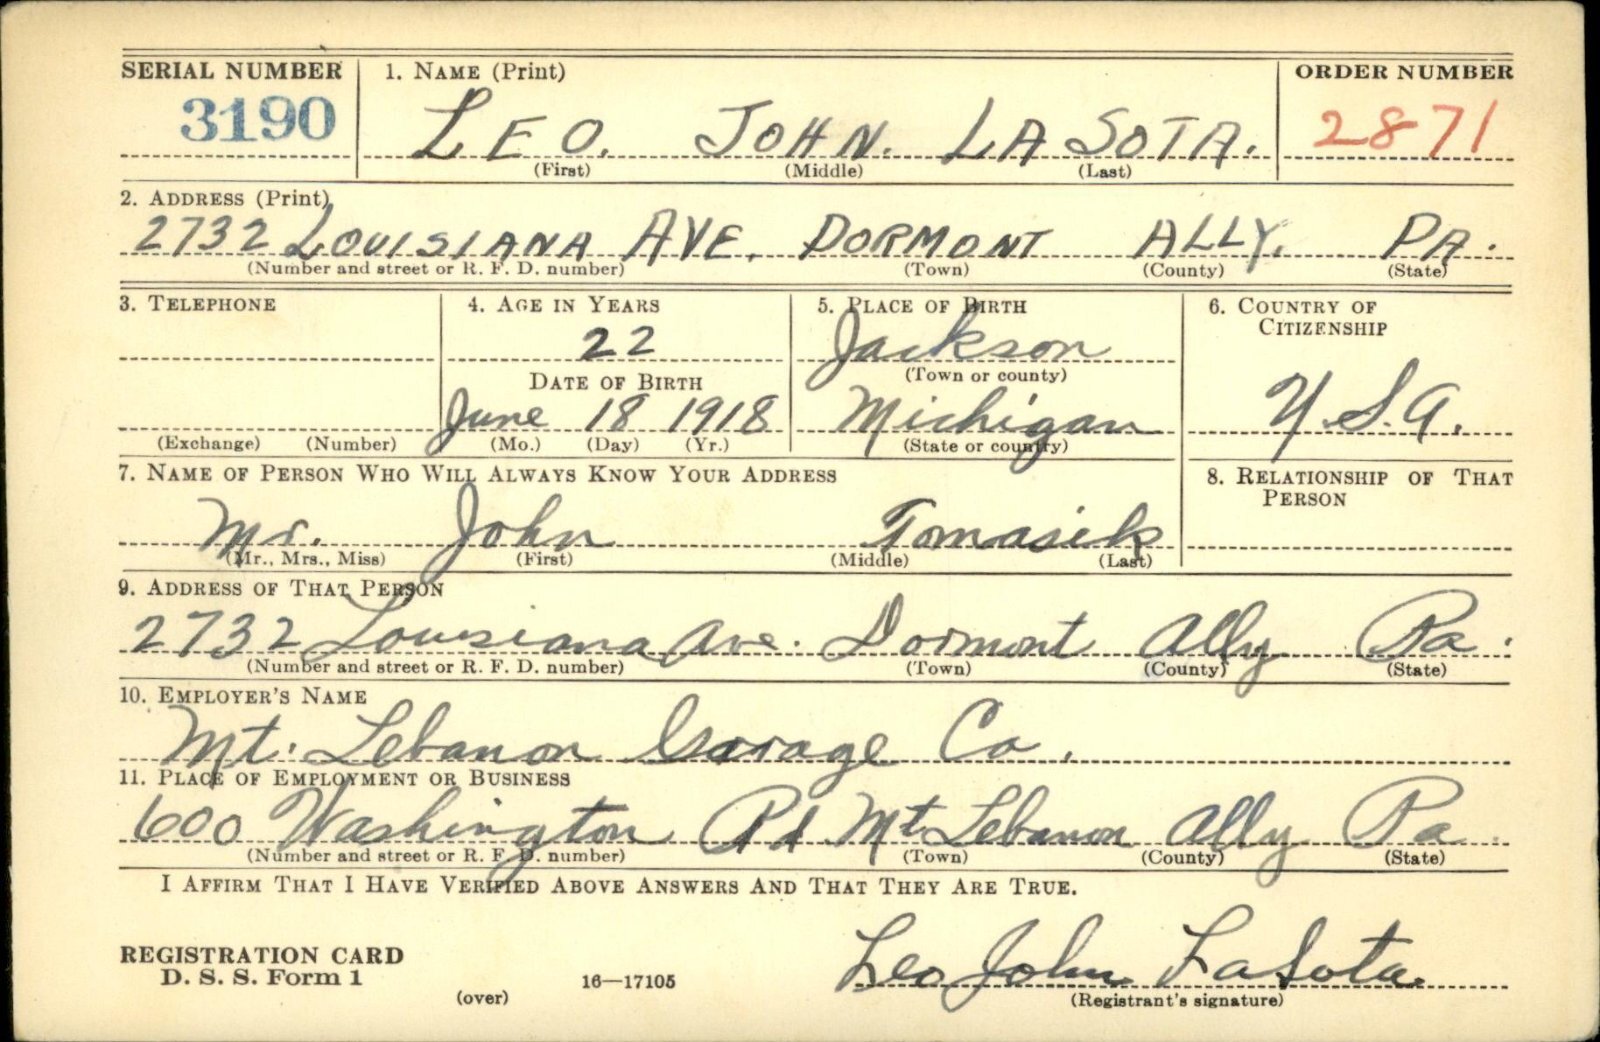 SERIAL NUMBER 1. NAME (Print) ORDER NUMBER
3190 LEO. JOHN. LA SOTA. 2871
(First) (Middle) (Last)
2. ADDRESS (Print)
2732 LOUISIANA AVE. DORMONT ALLY. PA.
(Number and street or R. F. D. number) (Town) (County) (State)
3. TELEPHONE 4. AGE IN YEARS 5. PLACE OF BIRTH 6. COUNTRY OF
CITIZENSHIP
22 Jackson
DATE OF BIRTH (Town or county)
June 18 1918 Michigan U.S.A.
(Exchange) (Number) (Mo.) (Day) (Yr.) (State or country)
7. NAME OF PERSON WHO WILL ALWAYS KNOW YOUR ADDRESS 8. RELATIONSHIP OF THAT
PERSON
Mr. John Tomasik
(Mr., Mrs., Miss) (First) (Middle) (Last)
9. ADDRESS OF THAT PERSON
2732 Louisiana Ave. Dormont Ally Pa.
(Number and street or R. F. D. number) (Town) (County) (State)
10. EMPLOYER'S NAME
Mt. Lebanon Garage Co.
11. PLACE OF EMPLOYMENT OR BUSINESS
600 Washington Rd. Mt. Lebanon Ally Pa.
(Number and street or R. F. D. number) (Town) (County) (State)
I AFFIRM THAT I HAVE VERIFIED ABOVE ANSWERS AND THAT THEY ARE TRUE.
REGISTRATION CARD Leo John LaSota.
D. S. S. Form 1 16—17105
(over) (Registrant's signature)